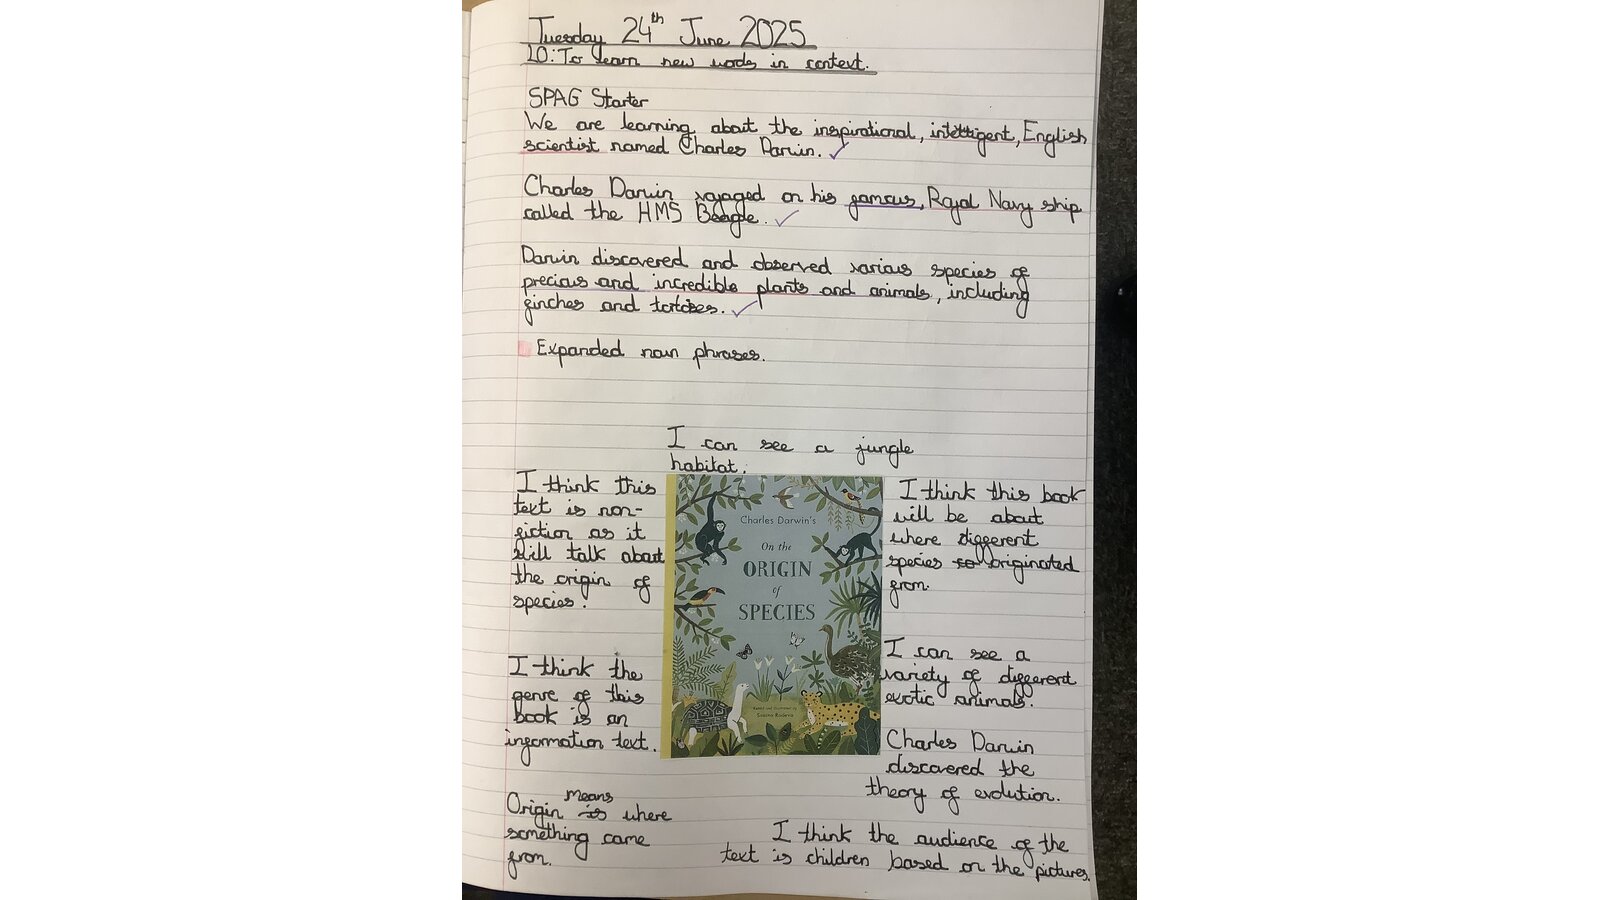 Tuesday 24th June 2025
LO: To learn new words in context.
SPAG Starter
We are learning about the inspirational, intelligent, English
scientist named Charles Darwin.
Charles Darwin voyaged on his famous, Royal Navy ship
called the HMS Beagle.
Darwin discovered and observed various species of
precious and incredible plants and animals, including
finches and
Expanded noun phrases.
I can see a jungle
habitat.
I think this
text is non-
fiction as it
will talk about
the origin of
species.
I think the
genre of this
book is an
information text.
Origin is means where
something came
from.
Charles Darwin's
On the
ORIGIN
of
SPECIES
Retold and illustrated by
Sabina Radeva
I think this book
will be about
where different
species originated
from.
I can see a
variety of different
exotic animals.
Charles Darwin
discovered the
theory of evolution.
I think the audience of the
text is children based on the pictures.